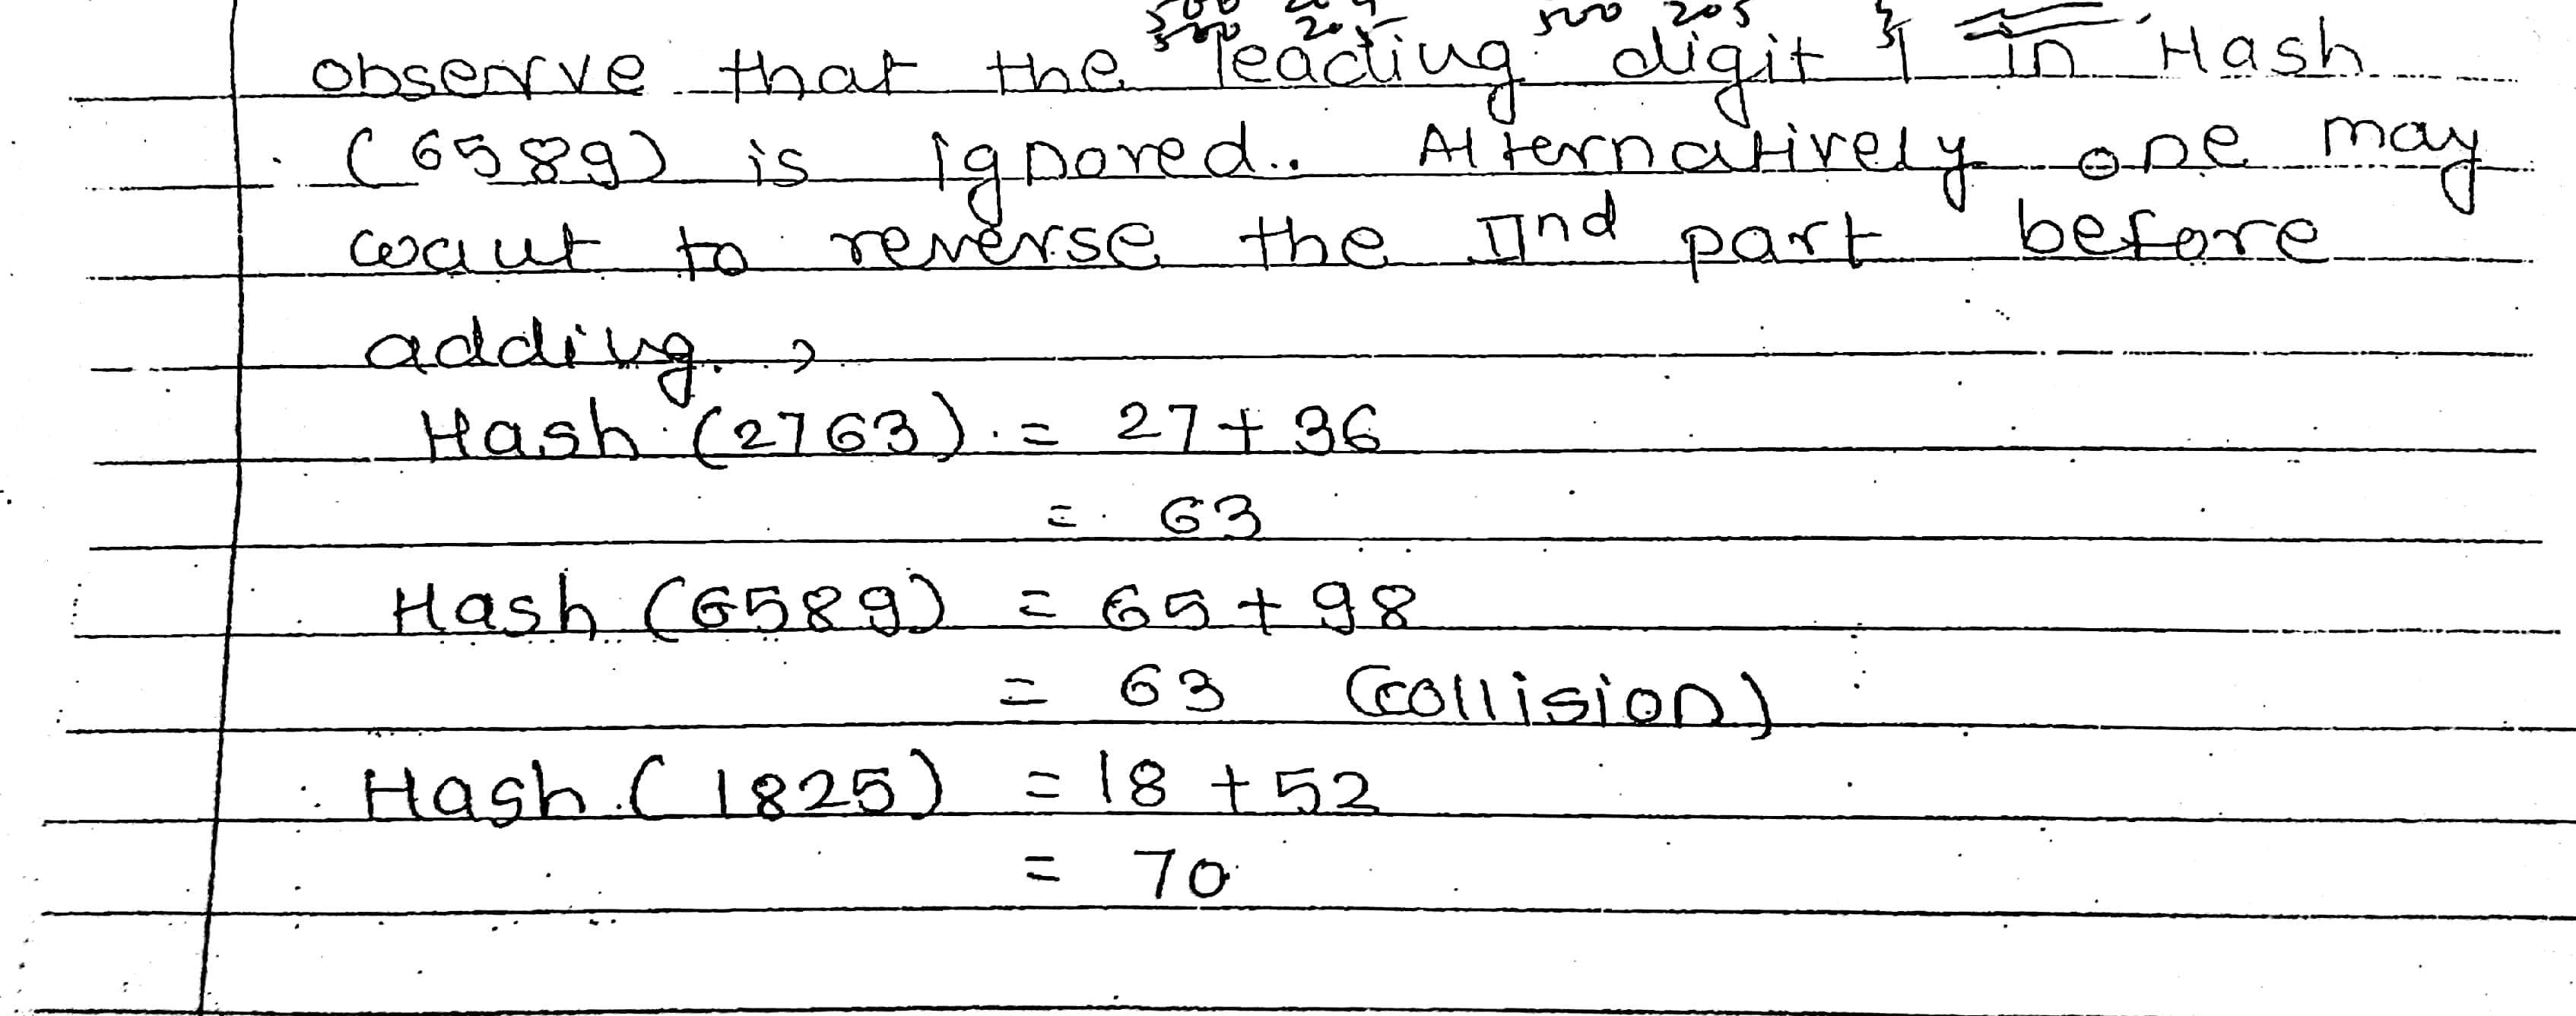 observe that the leading digit 1 in Hash
(6589) is ignored. Alternatively one may
want to reverse the IInd part before
adding,
Hash (2763) = 27 + 36
= 63
Hash (6589) = 65 + 98
= 63 (collision)
Hash (1825) = 18 + 52
= 70